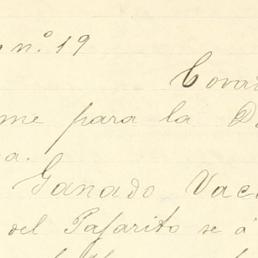 n.º 19
me para la
a.
Ganado Vac
del Pajarito se á